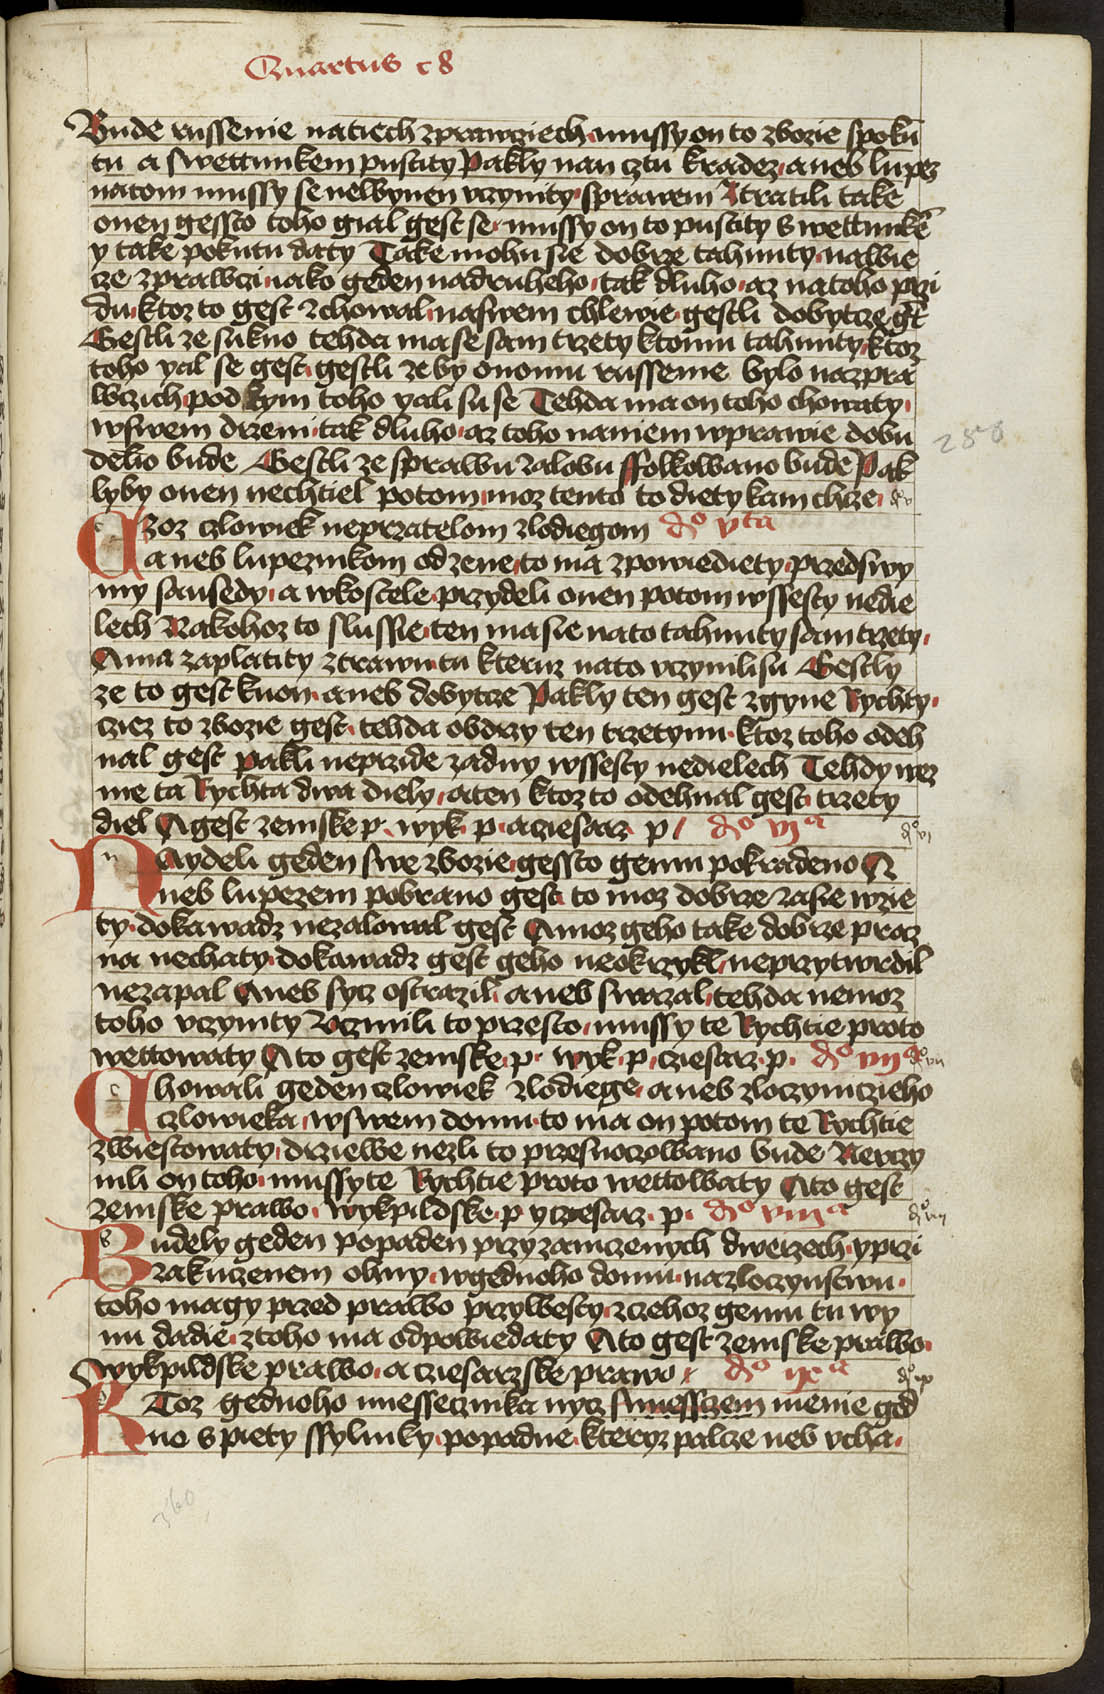 Quartus c8
Bude russenie natiech zprawcziech mussy on to zbozie s poku
tu a s wettunkem pustity Pakly nan cztu kradez aneb lupez
natom mussy se nelbynen vczynity sprawem Ztratili take
onen gessto toho gial gest se mussy on to pustity s wettunkē
y take pokutu daty Take mohu sie dobrze tahnuty nawie
cze zprawczi nako geden nadruheho tak dluho az natoho przi
du ktoz to gest zchowal naswem chlewie gestli dobytcze gt
Gestli ze sukno tehda ma se sam trzety ktomu tahnuty ktoz
toho yal se gest gestli ze by onomu russenie bylo nazpra
wczich pod kym toho yali su se Tehda ma on toho chowaty
wswem drzeni tak dluho az toho naniem wprawie dobu
deho bude Gestli ze sprawu zalobu ffolkowano bude Pak
lyby onen nechtiel potom moz tento to diety kam chcze
Czoz czlowiek neprzatelom zlodiegom d̄o vta
aneb lupeznikom odzene to ma zpowiediety przed swy
my sausedy a wkostele przydeli onen potom wssesty nedie
lech Nakohoz to slussie ten ma sie nato tahnuty sam trzety
A ma zaplatity ztrawu tu kteruz nato vczynili su Gestly
ze to gest kuon aneb dobytcze Pakly ten gest zgyne Rychty
cziez to zbozie gest tehda obdrzy ten trzetynu ktoz toho odeh
nal gest pakli neprzide zadny wssesty nedielech Tehdy wez
me ta Rychta dwa diely a ten ktoz to odehnal gest trzety
diel A gest zemske p. wyk. p. a cziesarz p / d̄o vi a
Naydeli geden swe zbozie gessto gemu pokradeno A
neb lupezem pobrano gest to moz dobrze zasie wzie
ty dokawadz nezalowal gest A moz geho take dobrze proz
na nechaty dokawadz gest geho neokrzykl neprzytwrdil
nezapal Aneb sycz ostrazil aneb swazal tehda nemoz
toho vczynity Vczinili to przesto mussy te Rychtie proto
wettowaty A to gest zemske p. wyk. p. cziesarz. p. d̄o vii a
Chowali geden czlowiek zlodiege aneb zloczynczieho
czlowieka wswem domu to ma on potom te Rychtie
zwiestowaty drziewe nezli to przesnoczowano bude Neuczy
nili on toho mussy te Rychtie proto wettowaty A to gest
zemske prawo wykpildske p y cziesarz. p. d̄o viii a
Budely geden popaden przy zamczenych dwerzech y przi
zakuczenem ohny wgednoho domu nazloczynstwu
toho magy przed prawo przywesty zczehoz gemu tu wy
nu dadie ztoho ma odpowiedaty A to gest zemske prawo
wykpildske prawo a cziesarzske prawo d̄o ix a
KToz gednoho miessecznika nycz s miessczem menie ged
no s piety ssylinky popadne kteryz palcze neb vcha